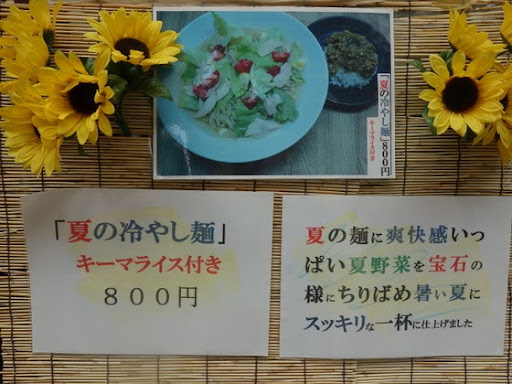 「夏の冷やし麺」800円
キーマライス付き
「夏の冷やし麺」
キーマライス付き
800円
夏の麺に爽快感いっ
ぱい夏野菜を宝石の
様にちりばめ暑い夏に
スッキリな一杯に仕上げました